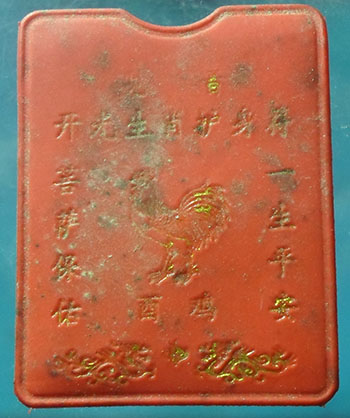 吉
开光生肖护身符
菩萨保佑
一生平安
酉鸡